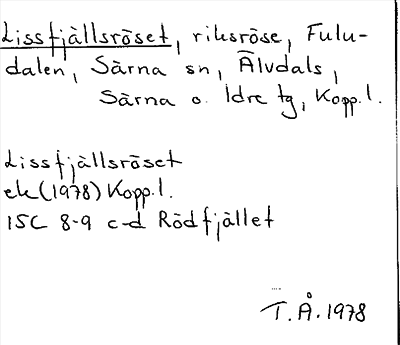 Lissfjällsröset, riksröse, Fulu-
dalen, Särna sn, Älvdals,
Särna o. Idre tg, Kopp.l.
Lissfjällsröset
ek (1978) Kopp.l.
15C 8-9 c-d Rödfjället
T.Å. 1978